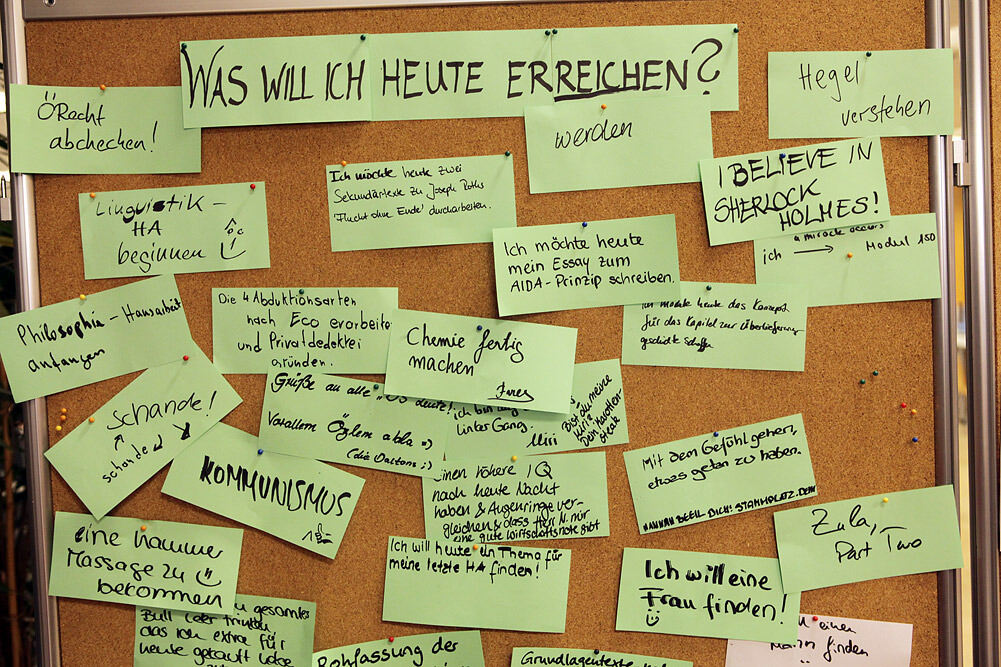 WAS WILL ICH HEUTE ERREICHEN?
ÖRecht
abchecken!
werden
Hegel
verstehen
Ich möchte heute zwei
Sekundärtexte zu Joseph Roths
'Flucht ohne Ende' durcharbeiten.
I BELIEVE IN
SHERLOCK
HOLMES!
Linguistik -
HA
beginnen
Ich möchte heute
mein Essay zum
AIDA-Prinzip schreiben.
a miracle occurs
ich → Modul 150
Philosophie - Hausarbeit
anfangen
Die 4 Abduktionsarten
nach Eco erarbeiten
und Privatdedektei
gründen.
Chemie fertig
machen
Ich möchte heute das Konzept
für das Kapitel zur Überlieferungs
geschichte schaffen
Schande!
schande
Grüße an alle
Vorallem Özlem abla =)
(die Daltons ;)
ich bin
linker Gang.
Miri
Bist du meine
Dein
steak
KOMMUNISMUS
einen höhere IQ
nach heute Nacht
haben & Augenringe ver-
gleichen & dass Herr N. mir
eine gute Wirtschaftsnote gibt
Mit dem Gefühl gehen,
etwas getan zu haben.
HANNAH BEEIL DICH! STAMMPLATZ.
Zula,
Part Two
eine hammer
Massage zu
bekommen
Ich will heute ein Thema für
meine letzte HA finden!
Ich will eine
Frau finden!
gesamten
Bull leer trinken
das ich extra für
heute gekauft habe
Rohfassung der
Grundlagentexte
einen
Mann finden